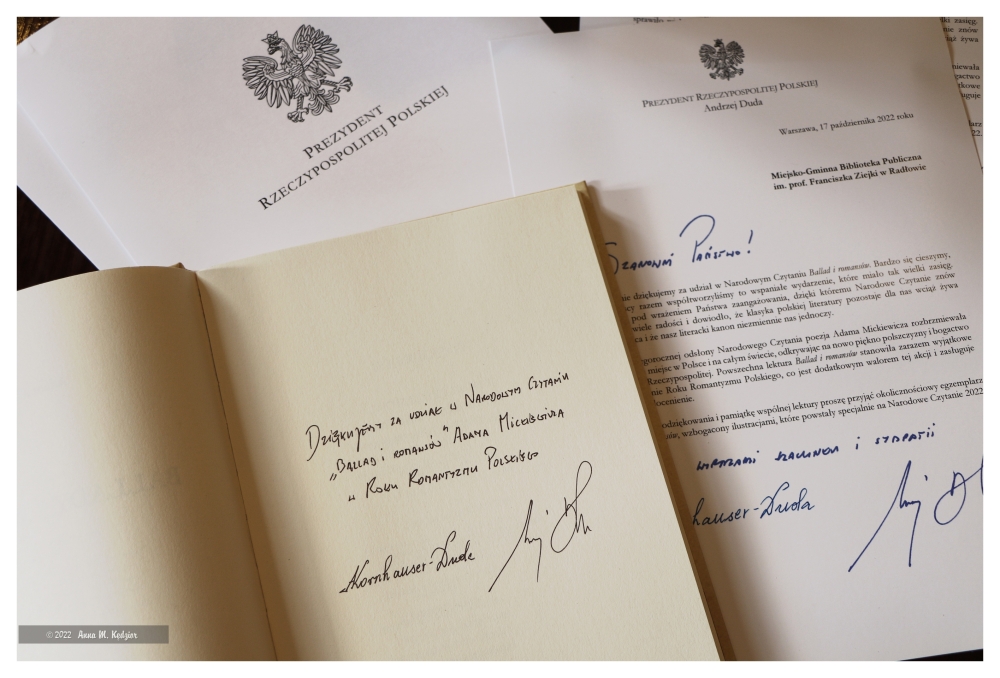 PREZYDENT
RZECZYPOSPOLITEJ POLSKIEJ
PREZYDENT RZECZYPOSPOLITEJ POLSKIEJ
Andrzej Duda
Warszawa, 17 października 2022 roku
Miejsko-Gminna Biblioteka Publiczna
im. prof. Franciszka Ziejki w Radłowie
Szanowni Państwo!
dziękujemy za udział w Narodowym Czytaniu Ballad i romansów. Bardzo się cieszymy,
razem współtworzyliśmy to wspaniałe wydarzenie, które miało tak wielki zasięg.
pod wrażeniem Państwa zaangażowania, dzięki któremu Narodowe Czytanie znów
wiele radości i dowiodło, że klasyka polskiej literatury pozostaje dla nas wciąż żywa
i że nasz literacki kanon niezmiennie nas jednoczy.
odsłony Narodowego Czytania poezja Adama Mickiewicza rozbrzmiewała
miejsc w Polsce i na całym świecie, odkrywając na nowo piękno polszczyzny i bogactwo
Rzeczypospolitej. Powszechna lektura Ballad i romansów stanowiła zarazem wyjątkowe
Roku Romantyzmu Polskiego, co jest dodatkowym walorem tej akcji i zasługuje
i pamiątkę wspólnej lektury proszę przyjąć okolicznościowy egzemplarz
wzbogacony ilustracjami, które powstały specjalnie na Narodowe Czytanie 2022
wyrazami szacunku i sympatii
hauser-Duda
Dziękujemy za udział w Narodowym Czytaniu
„Ballad i romansów" Adama Mickiewicza
w Roku Romantyzmu Polskiego
Kornhauser-Duda
© 2022 Anna M. Kędzior